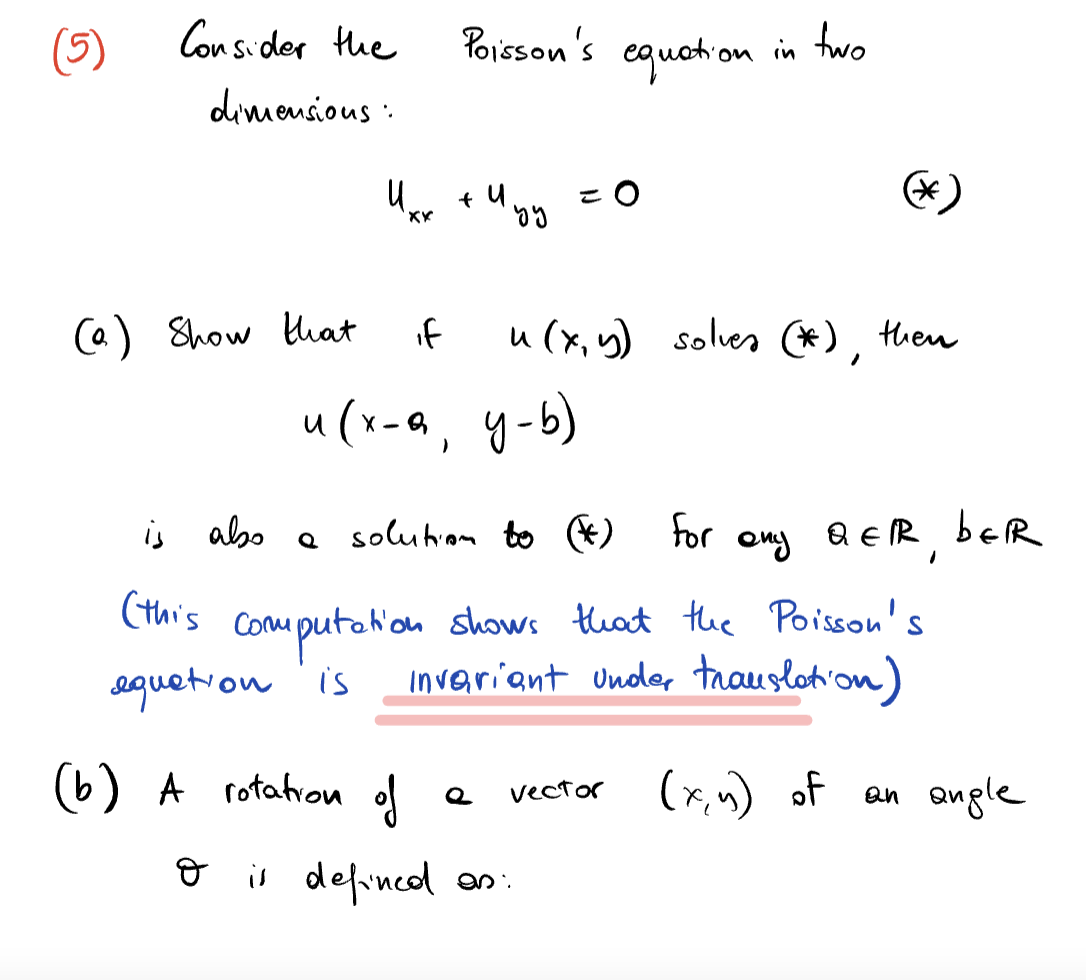 (5) Consider the Poisson's equation in two
dimensions:
u_xx + u_yy = 0 (*)
(a) Show that if u(x,y) solves (*), then
u(x-a, y-b)
is also a solution to (*) for any a∈ℝ, b∈ℝ
(this computation shows that the Poisson's
equation is invariant under translation)
(b) A rotation of a vector (x,y) of an angle
θ is defined as: